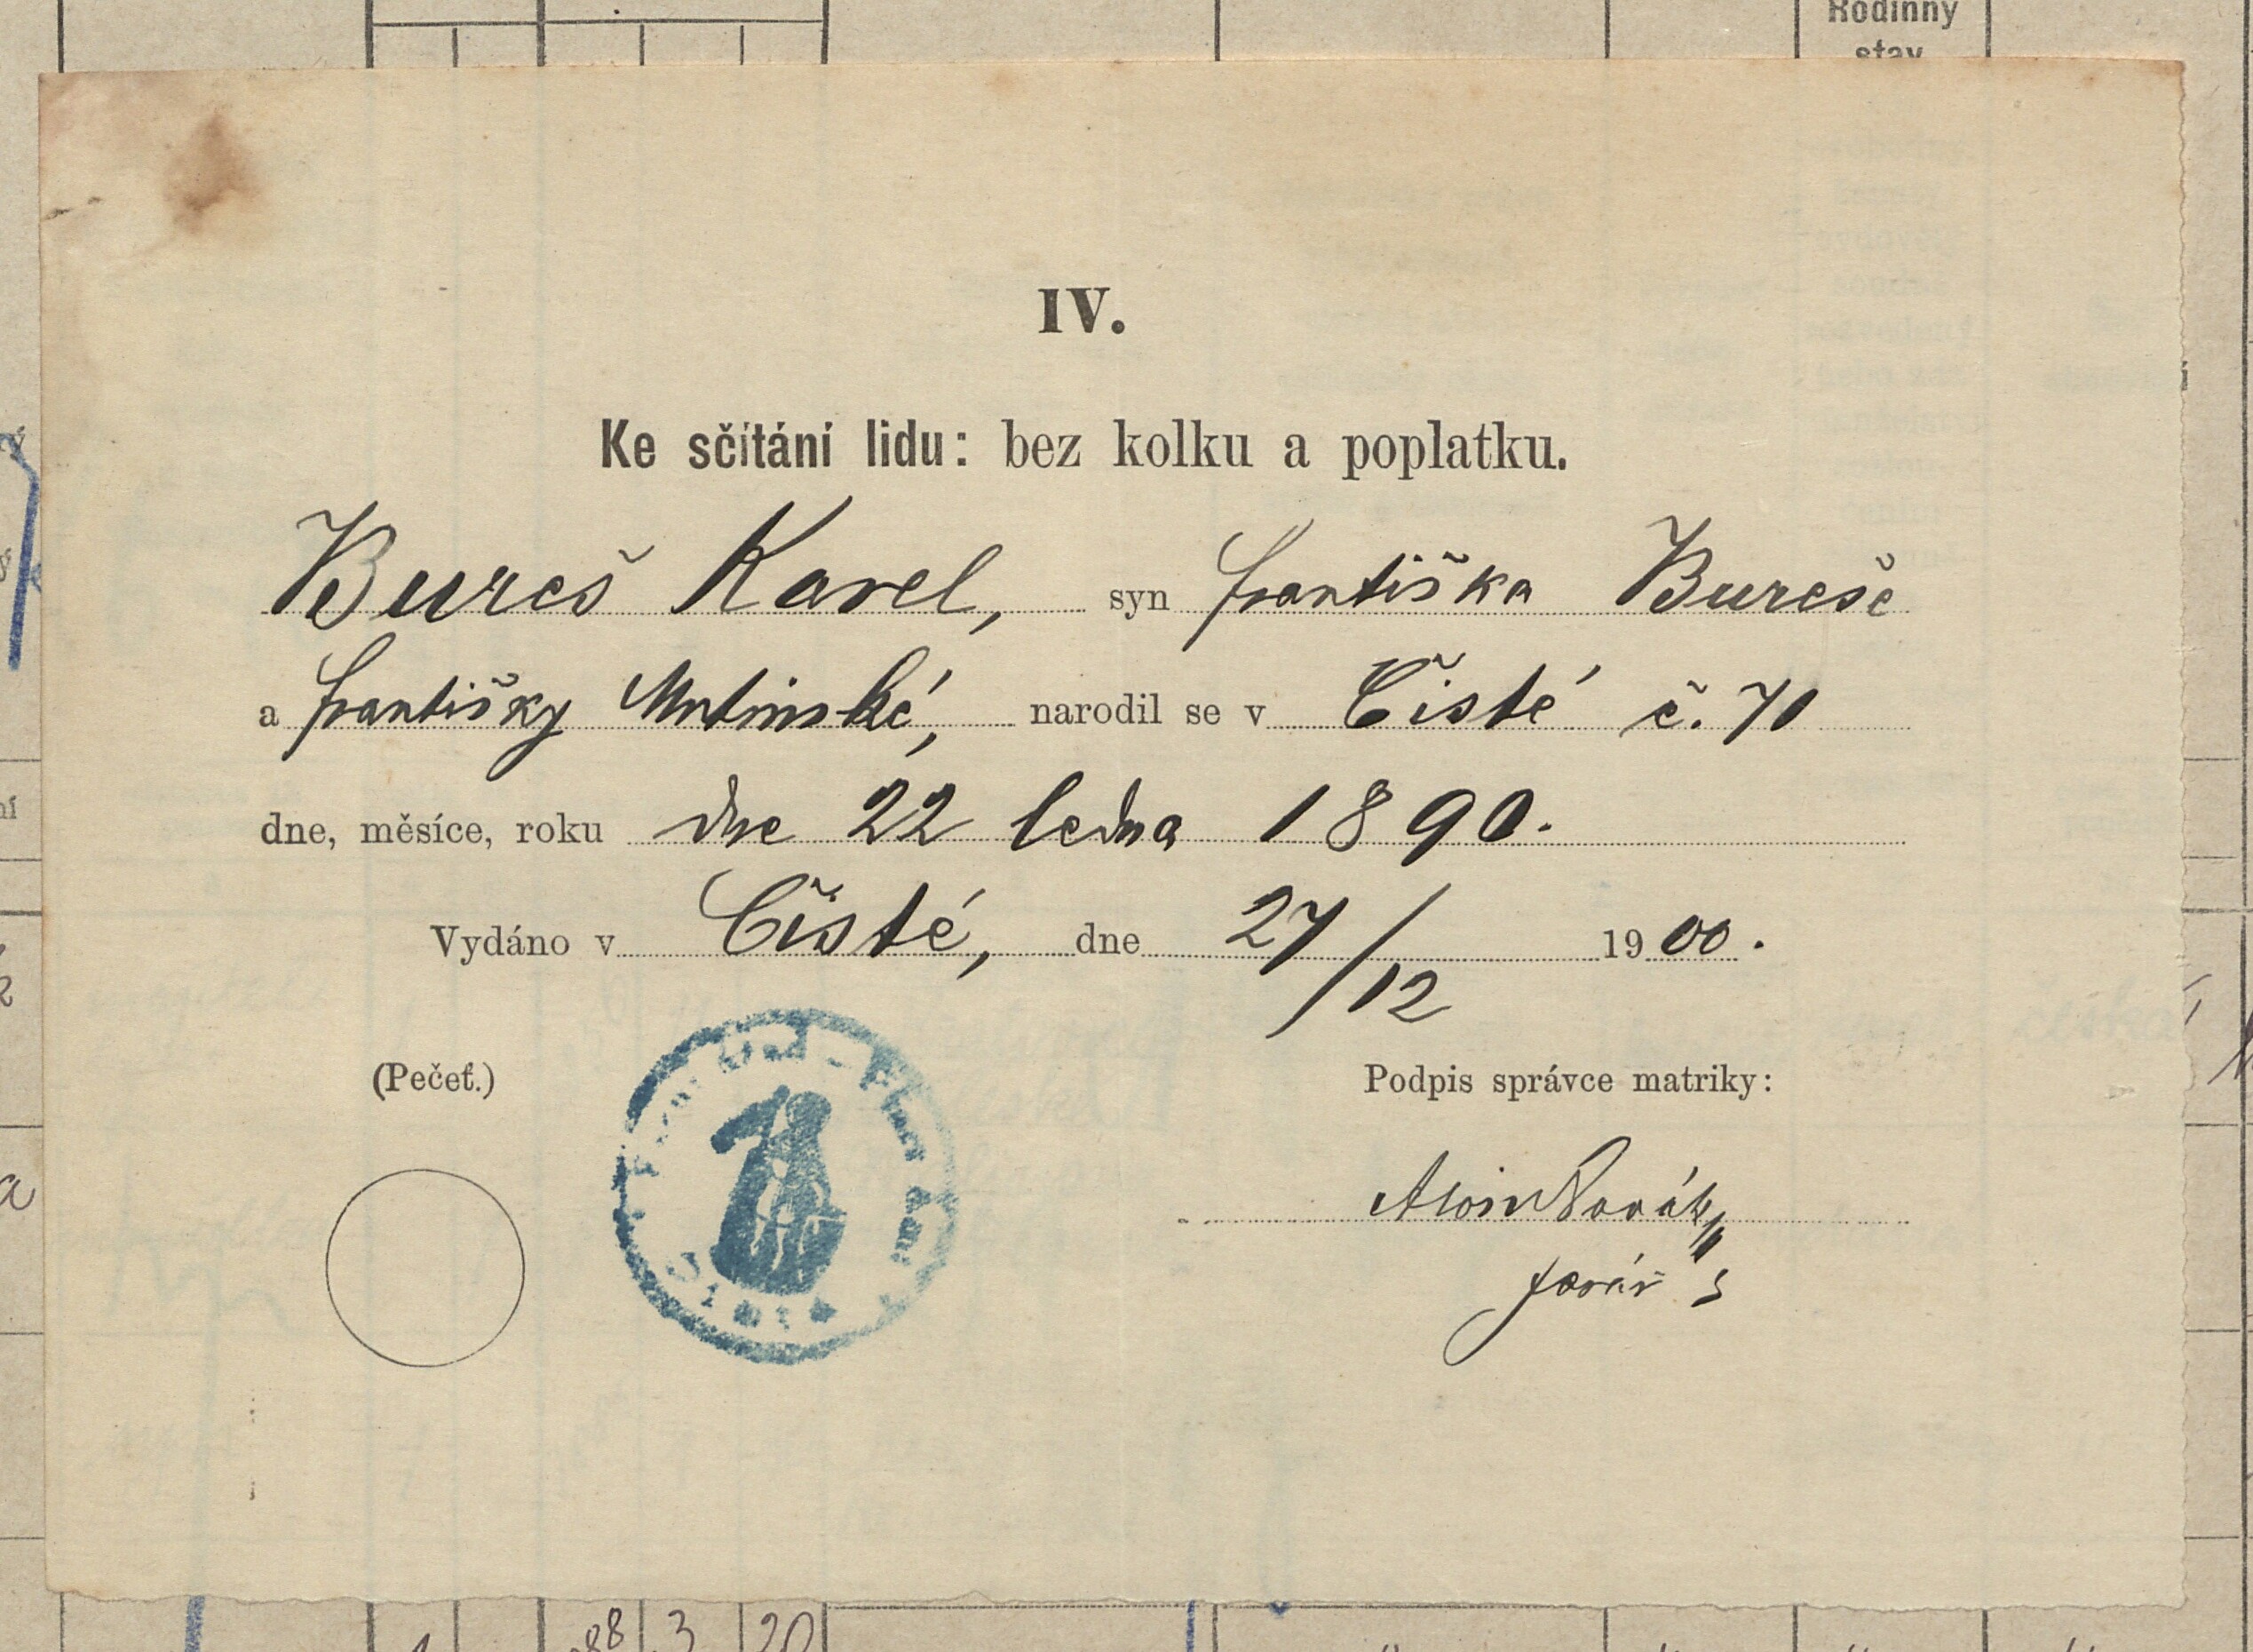 Rodinný
stav
IV.
Ke sčítání lidu: bez kolku a poplatku.
Bureš Karel, syn Františka Bureše
a Františky narozil se v Čisté č. 70
dne, měsíce, roku dne 22 ledna 1890.
Vydáno v Čisté, dne 27/12 1900.
(Pečeť.)
Podpis správce matriky:
Alois Novák
farář
88 3 20